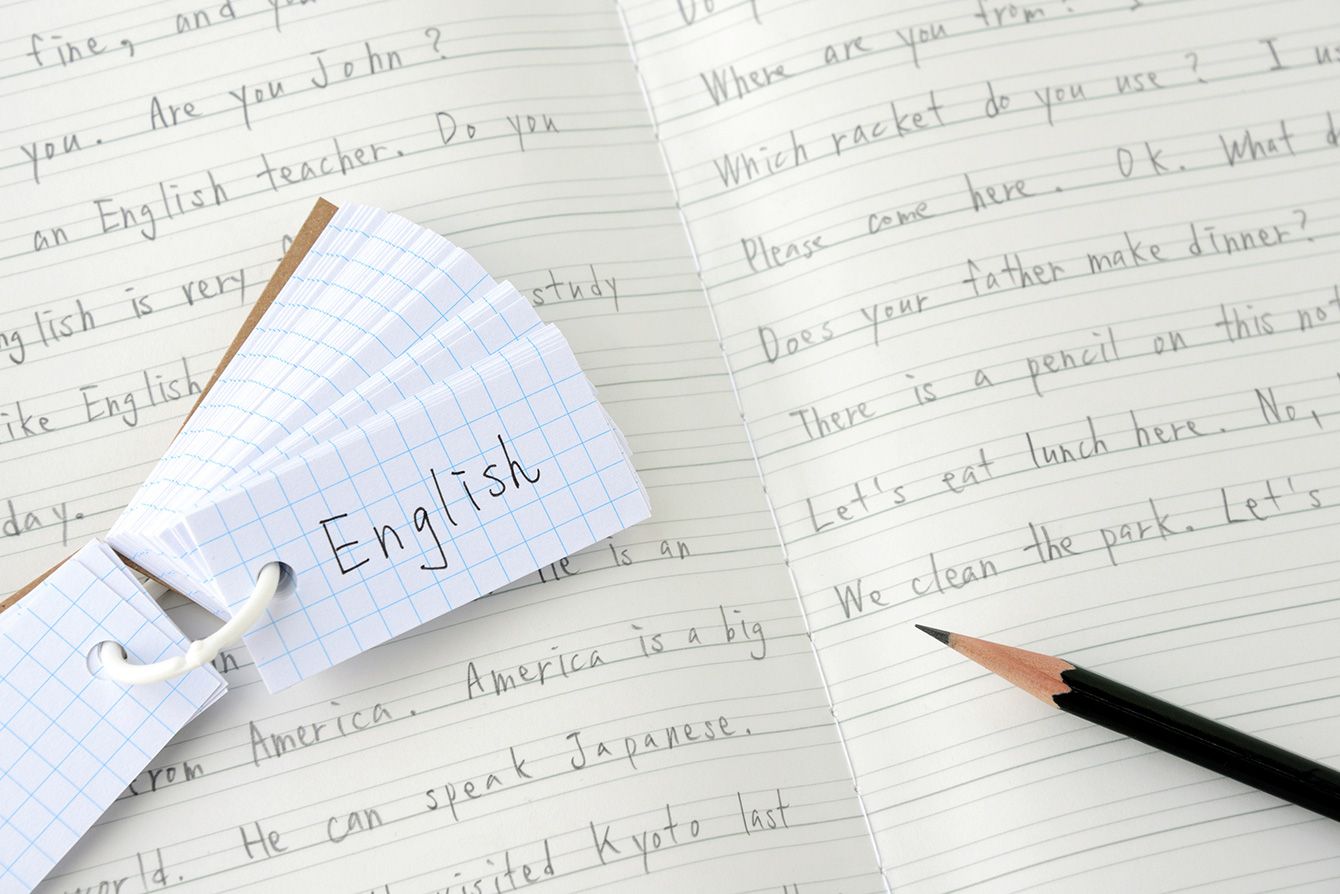 fine, and you
you. Are you John?
an English teacher. Do you
English is very
study
like English
day.
He is an
in
from America. America is a big
world. He can speak Japanese.
visited Kyoto last
English
Where are you from?
Which racket do you use? I
Please come here. Ok. What
Does your father make dinner?
There is a pencil on this
Let's eat lunch here. No,
We clean the park. Let's